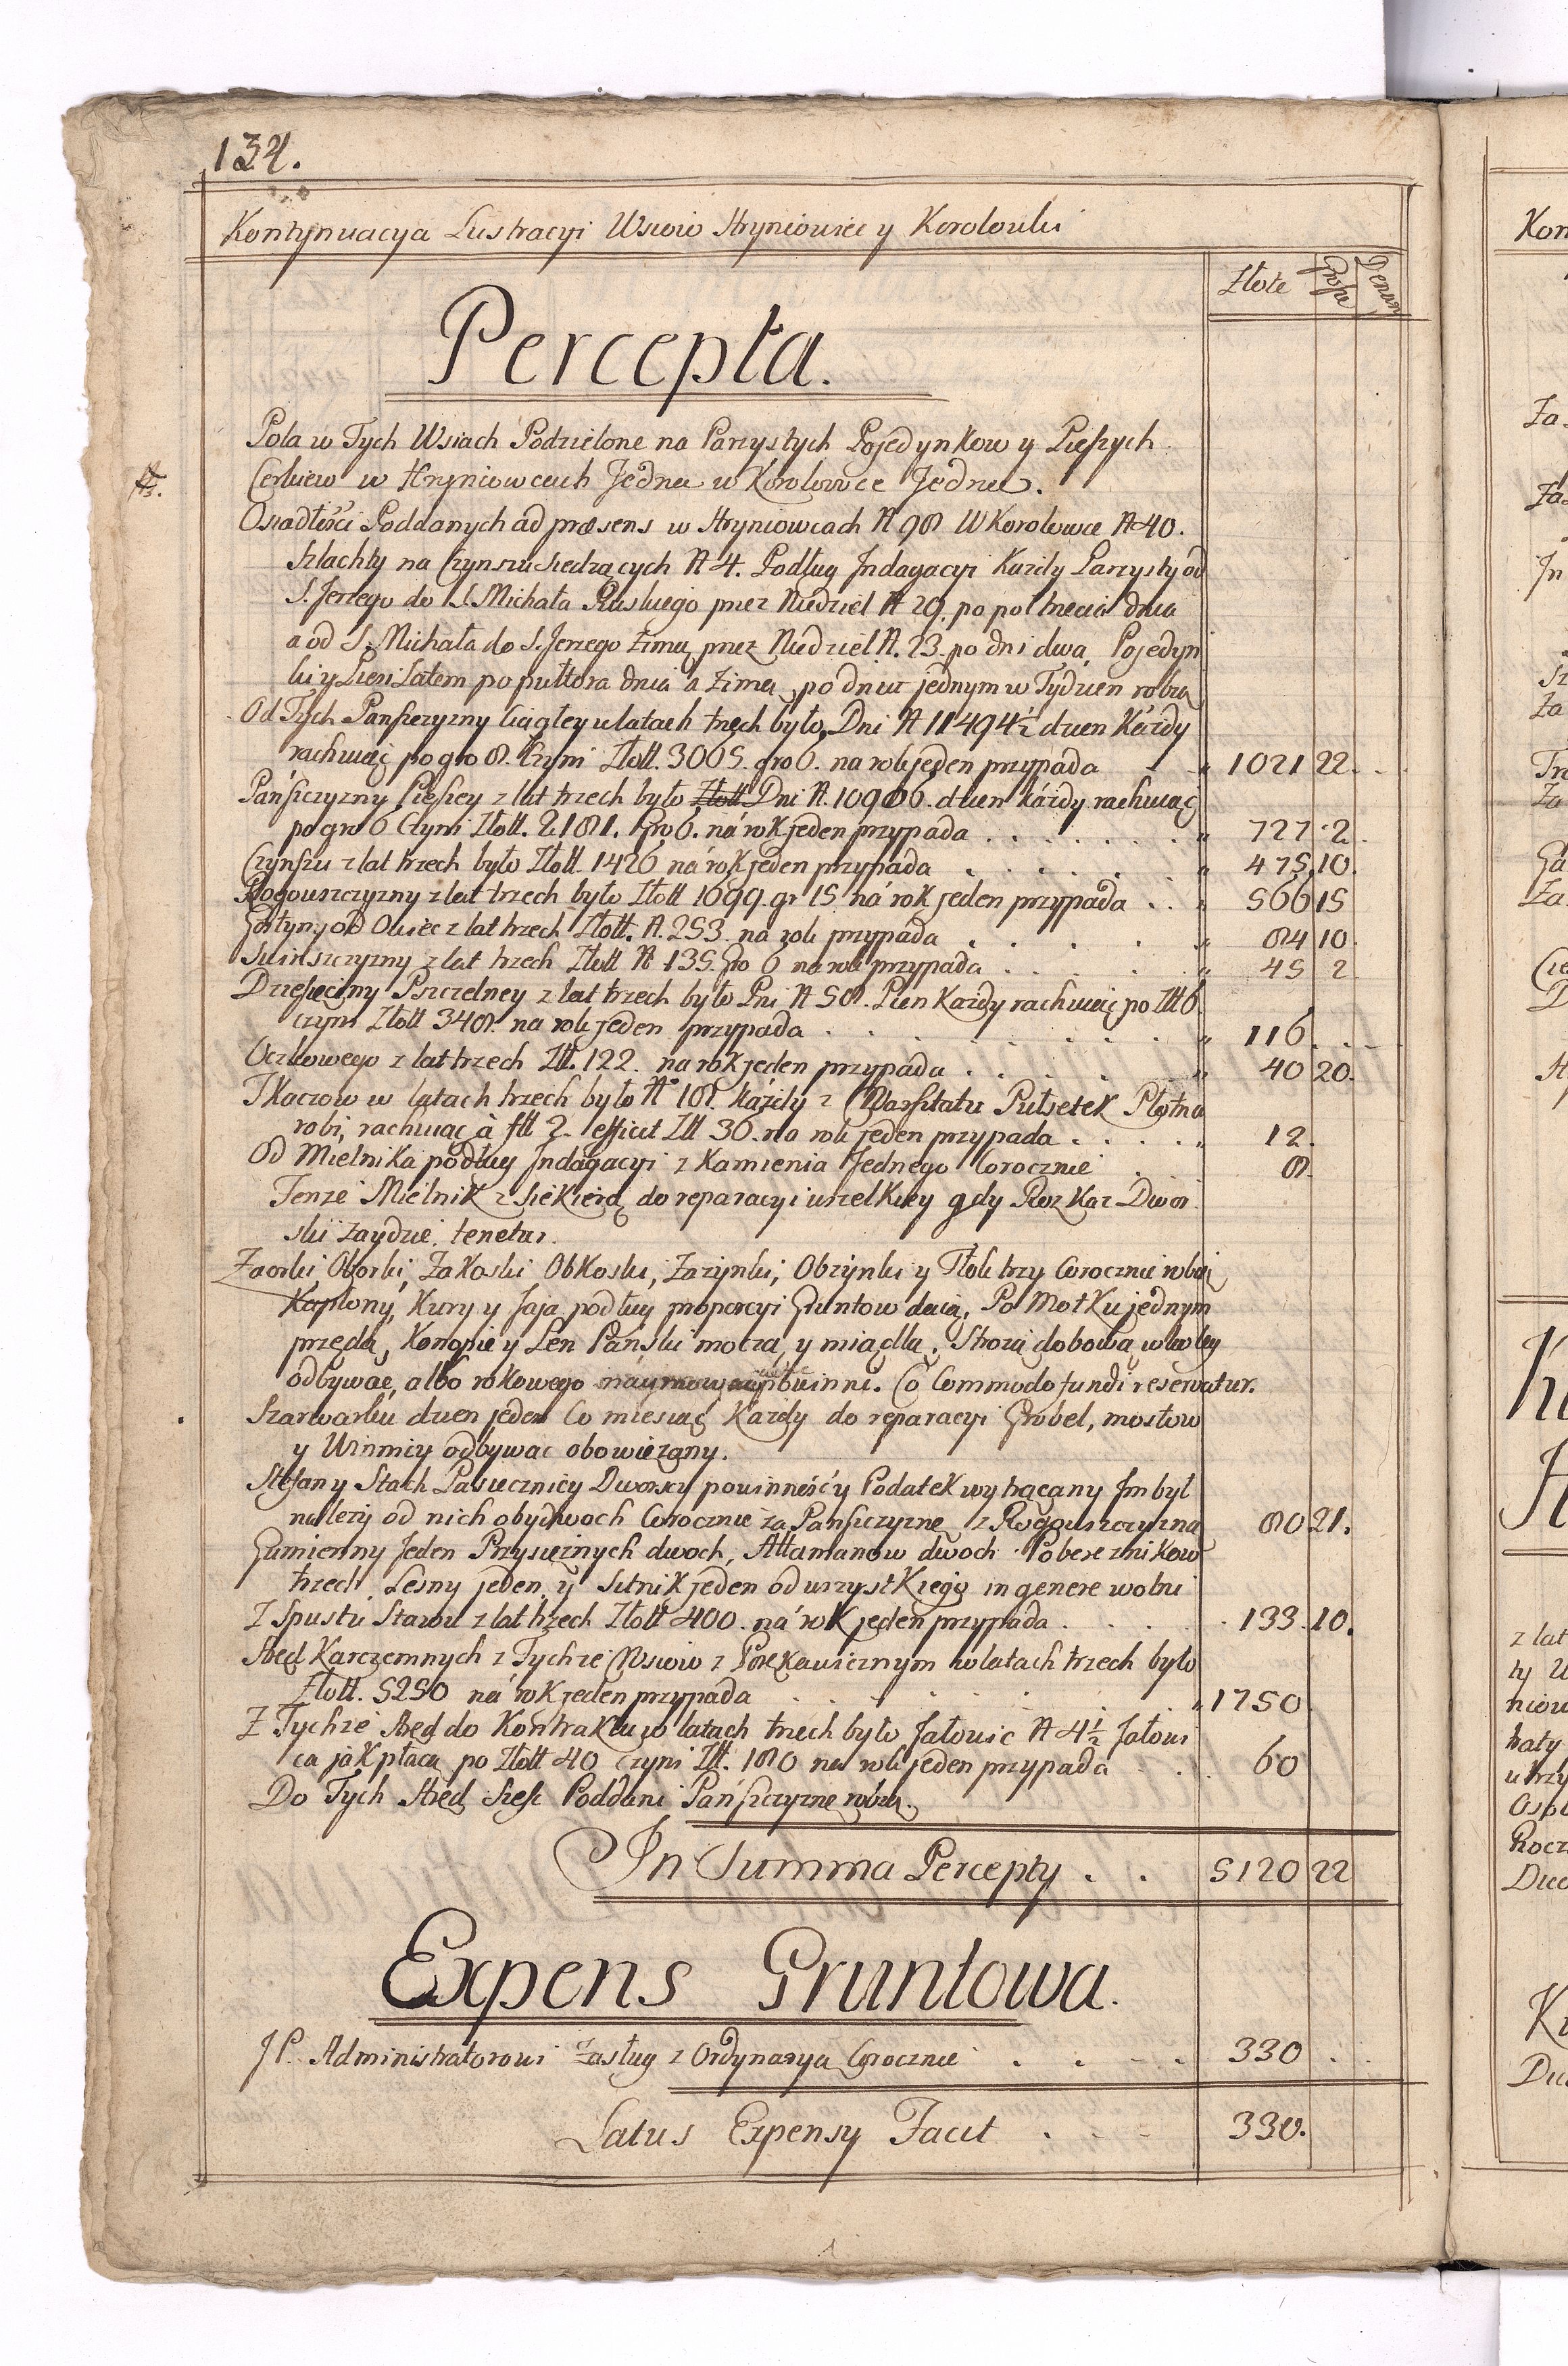 134.
Kontynuacya Lustracyi Wsiow Hryniowiec y Korolowki
Złote Grosze Denar
Percepta.
Pola w Tych Wsiach Podzielone na Parzystych Pojedynkow y Pieszych
Cerkiew w Hryniowcach Jedna w Korolowce Jedna.
Osiadłości Poddanych ad præsens w Hryniowcach N 98 W Korolowce N 40.
Szlachty na Czynszu siedzących N 4. Podług Indagacyi Każdy Parzysty od
S. Jerzego do S. Michała Ruskiego przez Niedziel N 29. po poł trzecia dnia
a od S. Michała do S. Jerzego Zimą przez Niedziel N. 23. po dni dwa, Pojedyn
ki y Piesi Latem po pułtora dnia a Zimą po dniu jednym w Tydzien robią
Od Tych Pansczyzny Ciągłey w latach trzech było, Dni N 11494½ dzien Każdy
rachuiąc po gro 8. Czyni Złott. 3065. gro 6. na rok jeden przypada " 1021 22.
Pańszczyzny Pieszey z lat trzech było Złott Dni N. 10906. dzien każdy rachuiąc
po gro 6 Czyni Złott. 2181. Gro 6. ná rok jeden przypada " 727 2
Czynszu z lat trzech było Złott. 1426 ná rok jeden przypada " 475 10.
Rogowszczyzny z lat trzech było Złott 1699. gr 15 ná rok jeden przypada " 566 15
Gołtyny od Owiec z lat trzech Złott. N. 253. na rok przypada " 84 10.
Swinszczyzny z lat trzech Złott N 135. Gro 6 na rok przypada " 45 2
Dziesięciny Pszczelney z lat trzech było Pni N 58. Pien Każdy rachuiąc po Złt 6.
czyni Złott 348. na rok jeden przypada " 116
Oczkowego z lat trzech Złt. 122. na rok jeden przypada " 40 20.
Tkaczow w latach trzech było N° 18. Każdy z Warsztatu Pułsetek Płotna
robi, rachuiąc à fll 2. efficit Złt 36. na rok jeden przypada " 12.
Od Mielnika podług Indagacyi z Kamienia Jednego Corocznie 8.
Tenze Mielnik z Siekierą do reparacyi wszelkiey gdy Rozkaz Dwor
ski zaydzie, tenetur.
Zaorki, Oborki, Zakoski Obkoski, Zazynki, Obzynki y Tłoki trzy Corocznie robią
Kapłony, Kury y Jaja podług proporcyi Gruntow daią, Po Motku jednym
przędą, Konopie y Len Pański moczą, y miądlą. Strożą dobową w koley
odbywać, albo rokowego powinni. Co Commodo fundi reservatur.
Szarwarku dzien jeden Co miesiąc Każdy do reparacyi Grobel, mostow
y Winnicy odbywac obowiązany.
Stefan y Stach Pasiecznicy Dworscy powinność y Podatek wytrącany Im był
należy od nich obydwoch Corocznie za Pansczyznę z Rogowszczyzna 80 21.
Gumienny Jeden Przysiężnych dwoch, Attamanow dwoch Pobereznikow
trzech Lesny jeden y Setnik jeden od wszystkiego in genere wolni
Z Spustu Stawu z lat trzech Złott 400. ná rok jeden przypada 133 10.
Aręd Karczemnych z Tychze Wsiow z Porękawicznym w latach trzech było
Złott. 5250 ná rok jeden przypada " 1750
Z Tychze Aręd do Kontraktu w latach trzech było Jałowic N 4½ Jałowi
ca jak płacą po Złott 40 czyni Złt. 180 na rok jeden przypada 60
Do Tych Aręd Sześć Poddani Pańszczyznę robią.
In Summa Percepty 5120 22
Expens Gruntowa.
JP. Administratorowi Zasług z Ordynaryą Corocznie 330
Latus Expensy Facit 330.